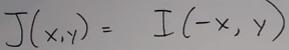 J(x,y) = I(-x, y)